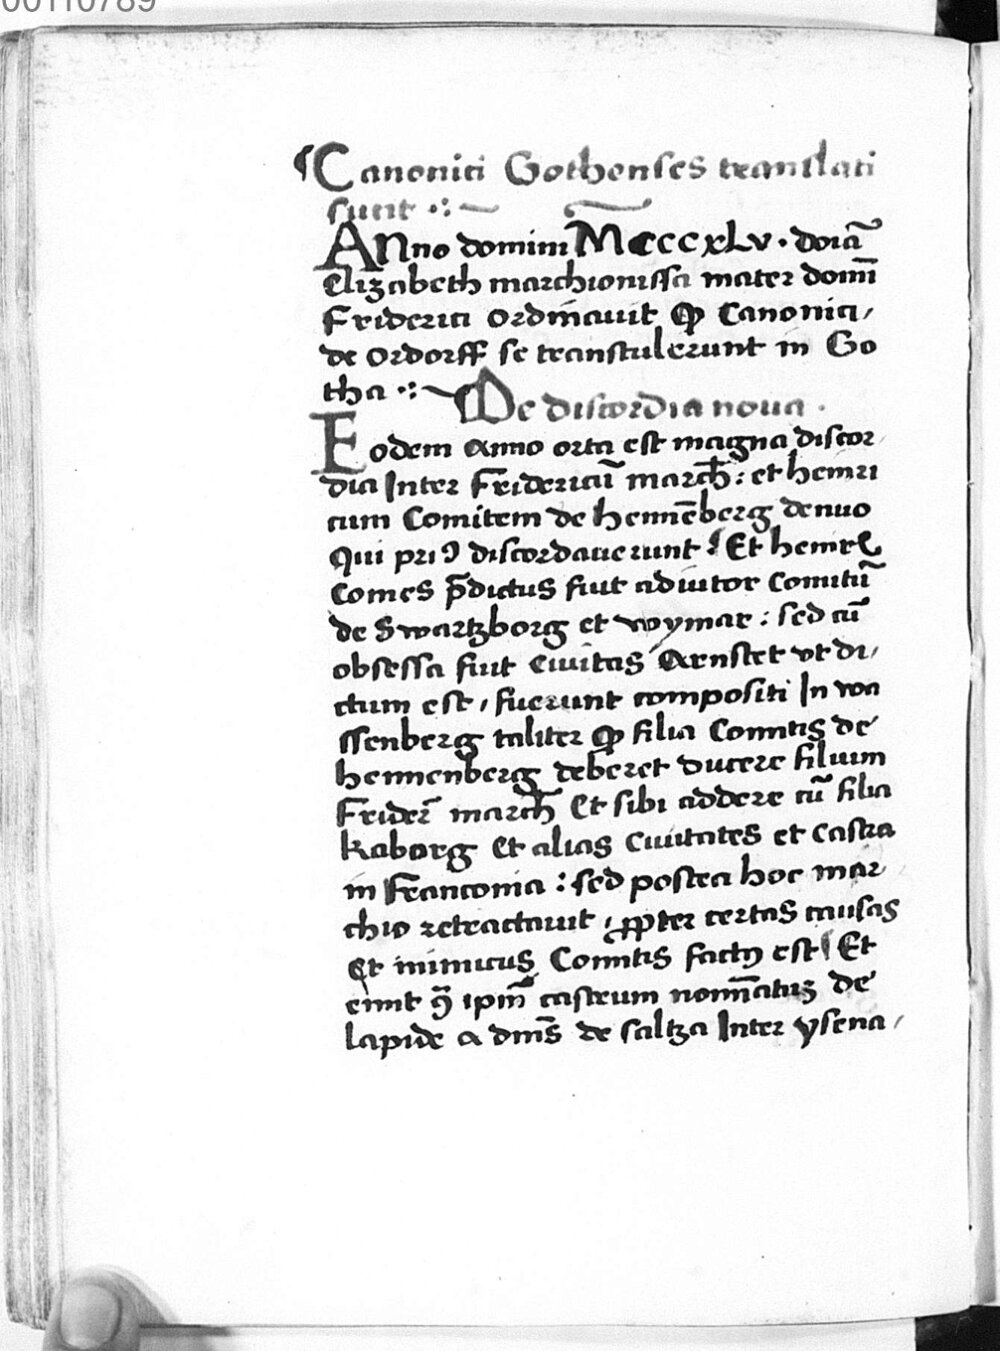 00110789
¶Canonici Gothenses translati
sunt ·:~
ANno domini Mcccxlv · doīa
Elizabeth marchionissa mater domī
Friderici ordīnauit ꝙ Canonici/
de Ordorff se transtulerunt in Go
tha ·:~ De discordia noua ·
Eodem Anno orta est magna discor
dia Inter Fridericū march̄: et heinri
cum Comitem de hennēberg denuo
Qui priꝰ discordauerunt ¶Et heinrꝭ
Comes p̄dictus fuit adiutor Comitū
de Swartzborg et wymar : sed cū
obsessa fuit Ciuitas Arnstet vt di/
ctum est / fuerunt compositi In wa
ssenberg taliter ꝙ filia Comitis de
hennenberg deberet ducere filium
Frider̄ march̄ Et sibi addere cū filia
Koborg Et alias Ciuitates et castra
in Franconia : sed postea hoc mar
chio retractauit / ꝓpter certas causas
Et inimicus Comitis factꝯ est ¶Et
emit ꝙ̄ ip̄m castrum nom̄īatuꝫ de
lapide a dnīs de saltza Inter ysena/